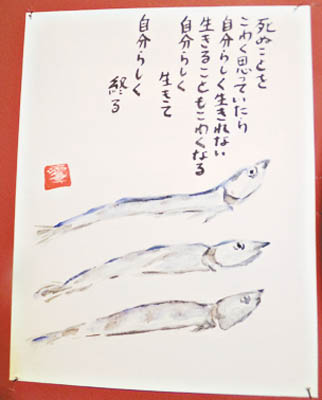 死ぬことを
こわく思っていたら
自分らしく生きれない
生きることもこわくなる
自分らしく
生きて
自分らしく
終る